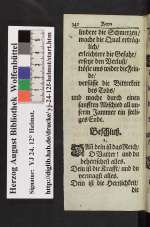 342
lindere der Schmertzen/
mache die Qual erträg-
lich/
erleichtere die Gefahr/
ersetze den Verlust/
tröste uns wider die Fein-
de/
versüsse die Bitterkeit
des Todes/
und mache durch einen
sanfften Abschied all un-
serm Jammer ein seeli-
ges Ende.
Beschluß.
Dann dein ist das Reich/
O Vatter! und du
beherrschest alles.
Dein ist die Krafft/ und du
vermagst alles.
Dein ist die Herrlichkeit/
Herzog August Bibliothek Wolfenbüttel
Signatur: YJ 24. 12° Helmst.
http://diglib.hab.de/drucke/yj-24-12f-helmst/start.htm